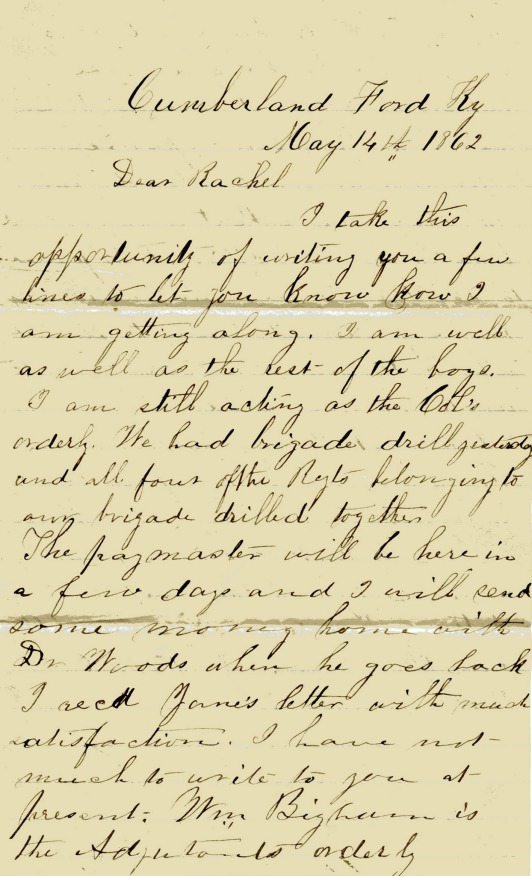 Cumberland Ford Ky
May 14th 1862
Dear Rachel
I take this
opportunity of writing you a few
lines to let you know how I
am getting along. I am well
as well as the rest of the boys.
I am still acting as the Col's
orderly. We had brigade drill yesterday
and all four of the Regts belonging to
our brigade drilled together
The paymaster will be here in
a few days and I will send
some money home with
Dr Woods when he goes back
I recd Jane's letter with much
satisfaction. I have not
much to write to you at
present. Wm Bigham is
the Adjutants orderly